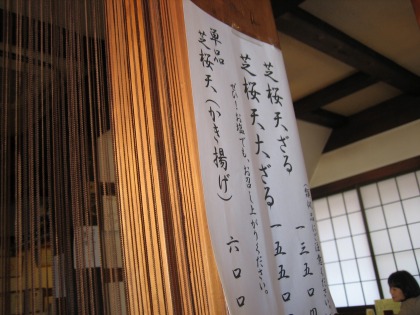 芝桜天ざる 一三五〇
芝桜天大ざる 一五五〇
お塩でも、お召し上がりください。
単品
芝桜天（かき揚げ） 六〇〇